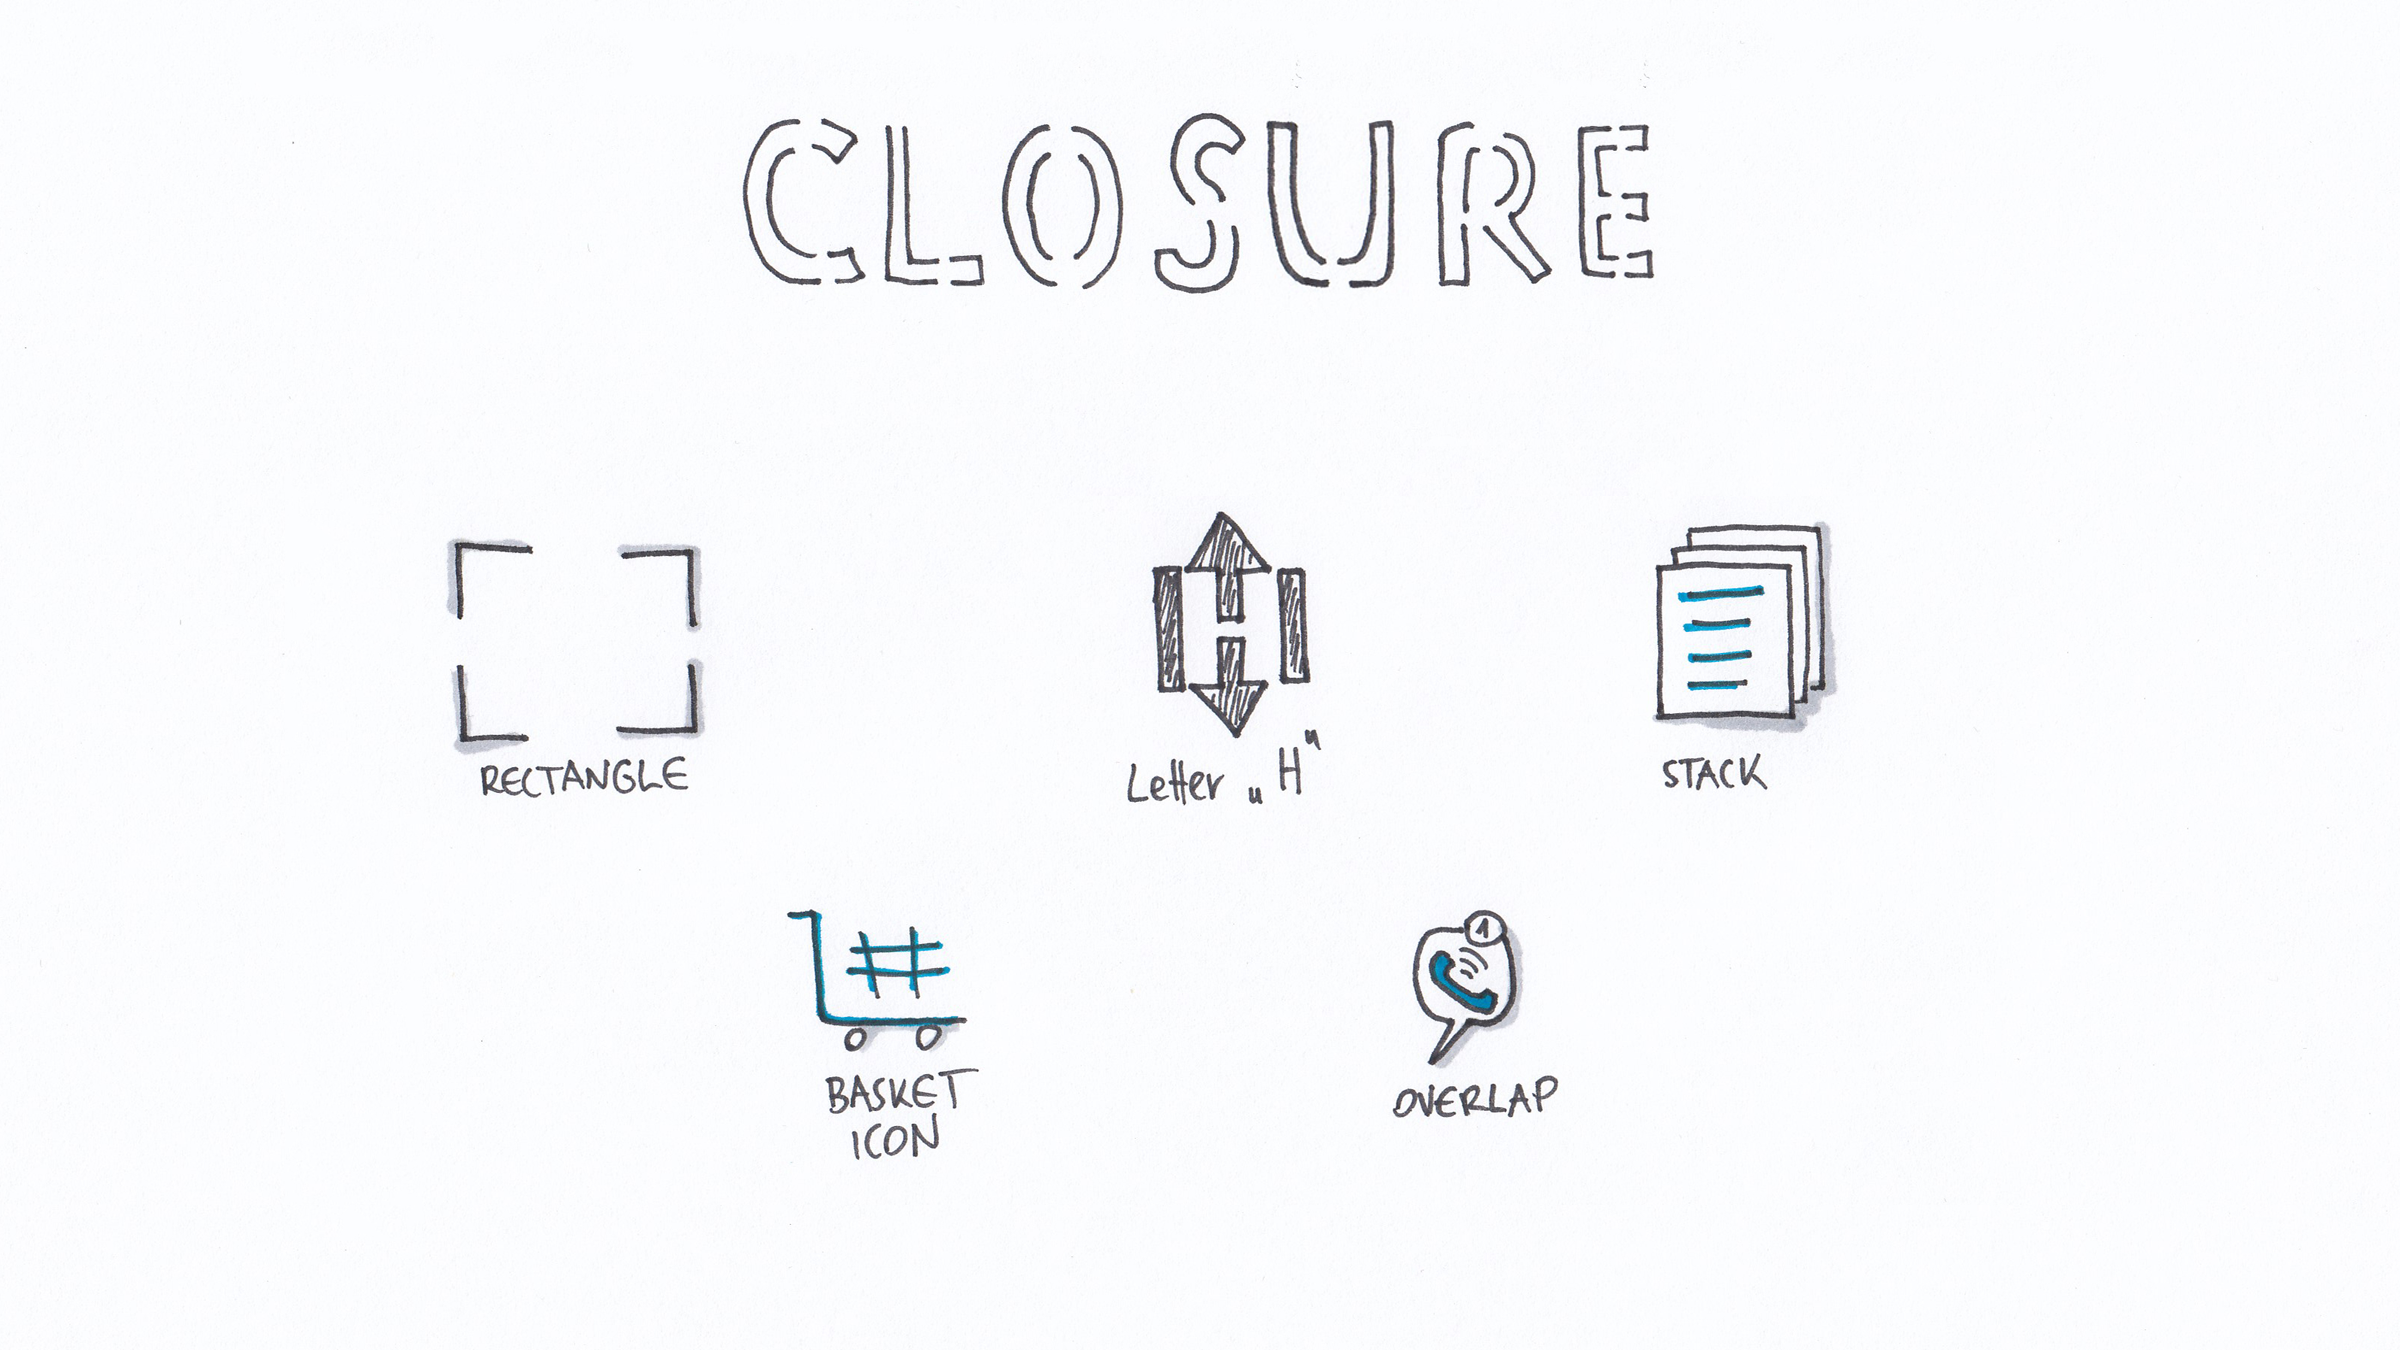 CLOSURE
RECTANGLE
Letter „H"
STACK
1
BASKET
ICON
OVERLAP